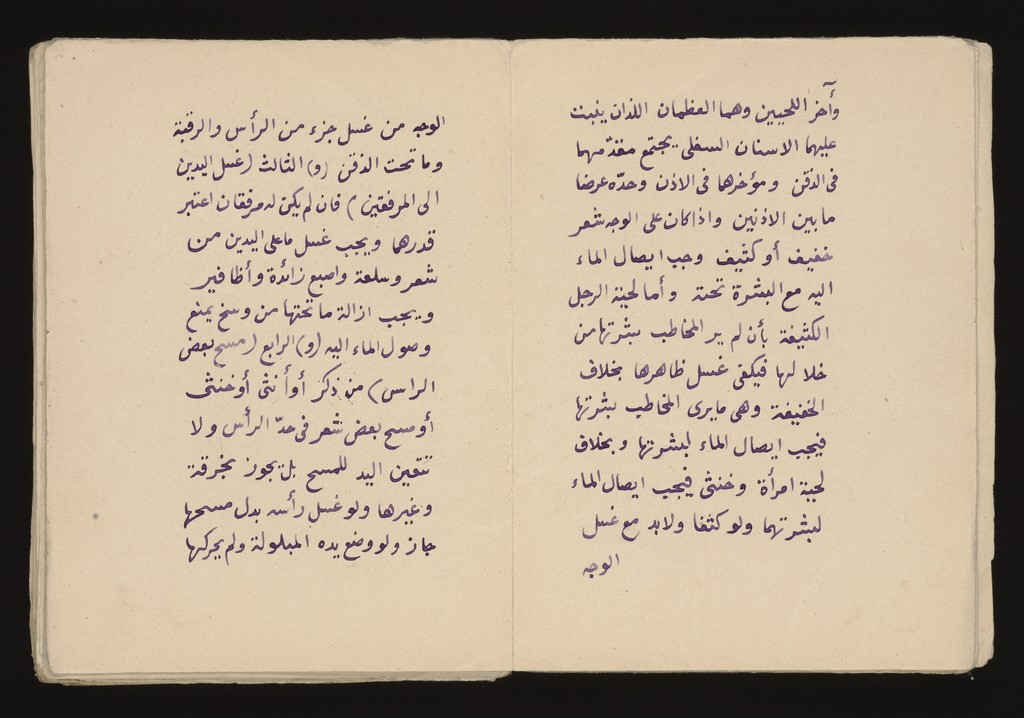 وآخر اللحيين وهما العظمان اللذان ينبت
عليهما الاسنان السفلى يجتمع مقدّمهما
فى الذقن ومؤخرهما فى الاذن وحدّه عرضا
ما بين الاذنين واذا كان على الوجه شعر
خفيف أو كثيف وجب ايصال الماء
اليه مع البشرة تحته وأما لحية الرجل
الكثيفة بأن لم ير المخاطب بشرتها من
خلالها فيكفى غسل ظاهرها بخلاف
الخفيفة وهى ما يرى المخاطب بشرتها
فيجب ايصال الماء لبشرتها وبخلاف
لحية امرأة وخنثى فيجب ايصال الماء
لبشرتهما ولو كثفا ولابد مع غسل
الوجه
الوجه من غسل جزء من الرأس والرقبة
وما تحت الذقن (و) الثالث (غسل اليدين
الى المرفقين) فان لم يكن له مرفقان اعتبر
قدرهما ويجب غسل ما على اليدين من
شعر وسلعة واصبع زائدة وأظافير
ويجب ازالة ما تحتها من وسخ يمنع
وصول الماء اليه (و) الرابع (مسح بعض
الراس) من ذكر أو أنثى أو خنثى
أو مسح بعض شعر فى حدّ الرأس ولا
تتعين اليد للمسح بل يجوز بخرقة
وغيرها ولو غسل رأسه بدل مسحها
جاز ولو وضع يده المبلولة ولم يحركها